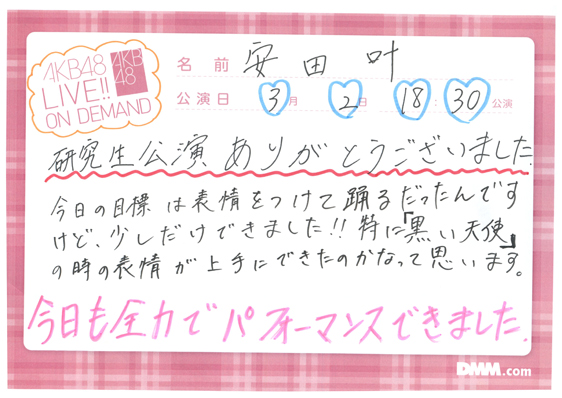 AKB48
LIVE!!
ON DEMAND
AKB
48
名前 安田 叶
公演日 3月 2日 18:30公演
研究生公演ありがとうございました
今日の目標は表情をつけて踊るだったんです
けど、少しだけできました!!特に「黒い天使」
の時の表情が上手にできたのかなって思います。
今日も全力でパフォーマンスできました。
DMM.com